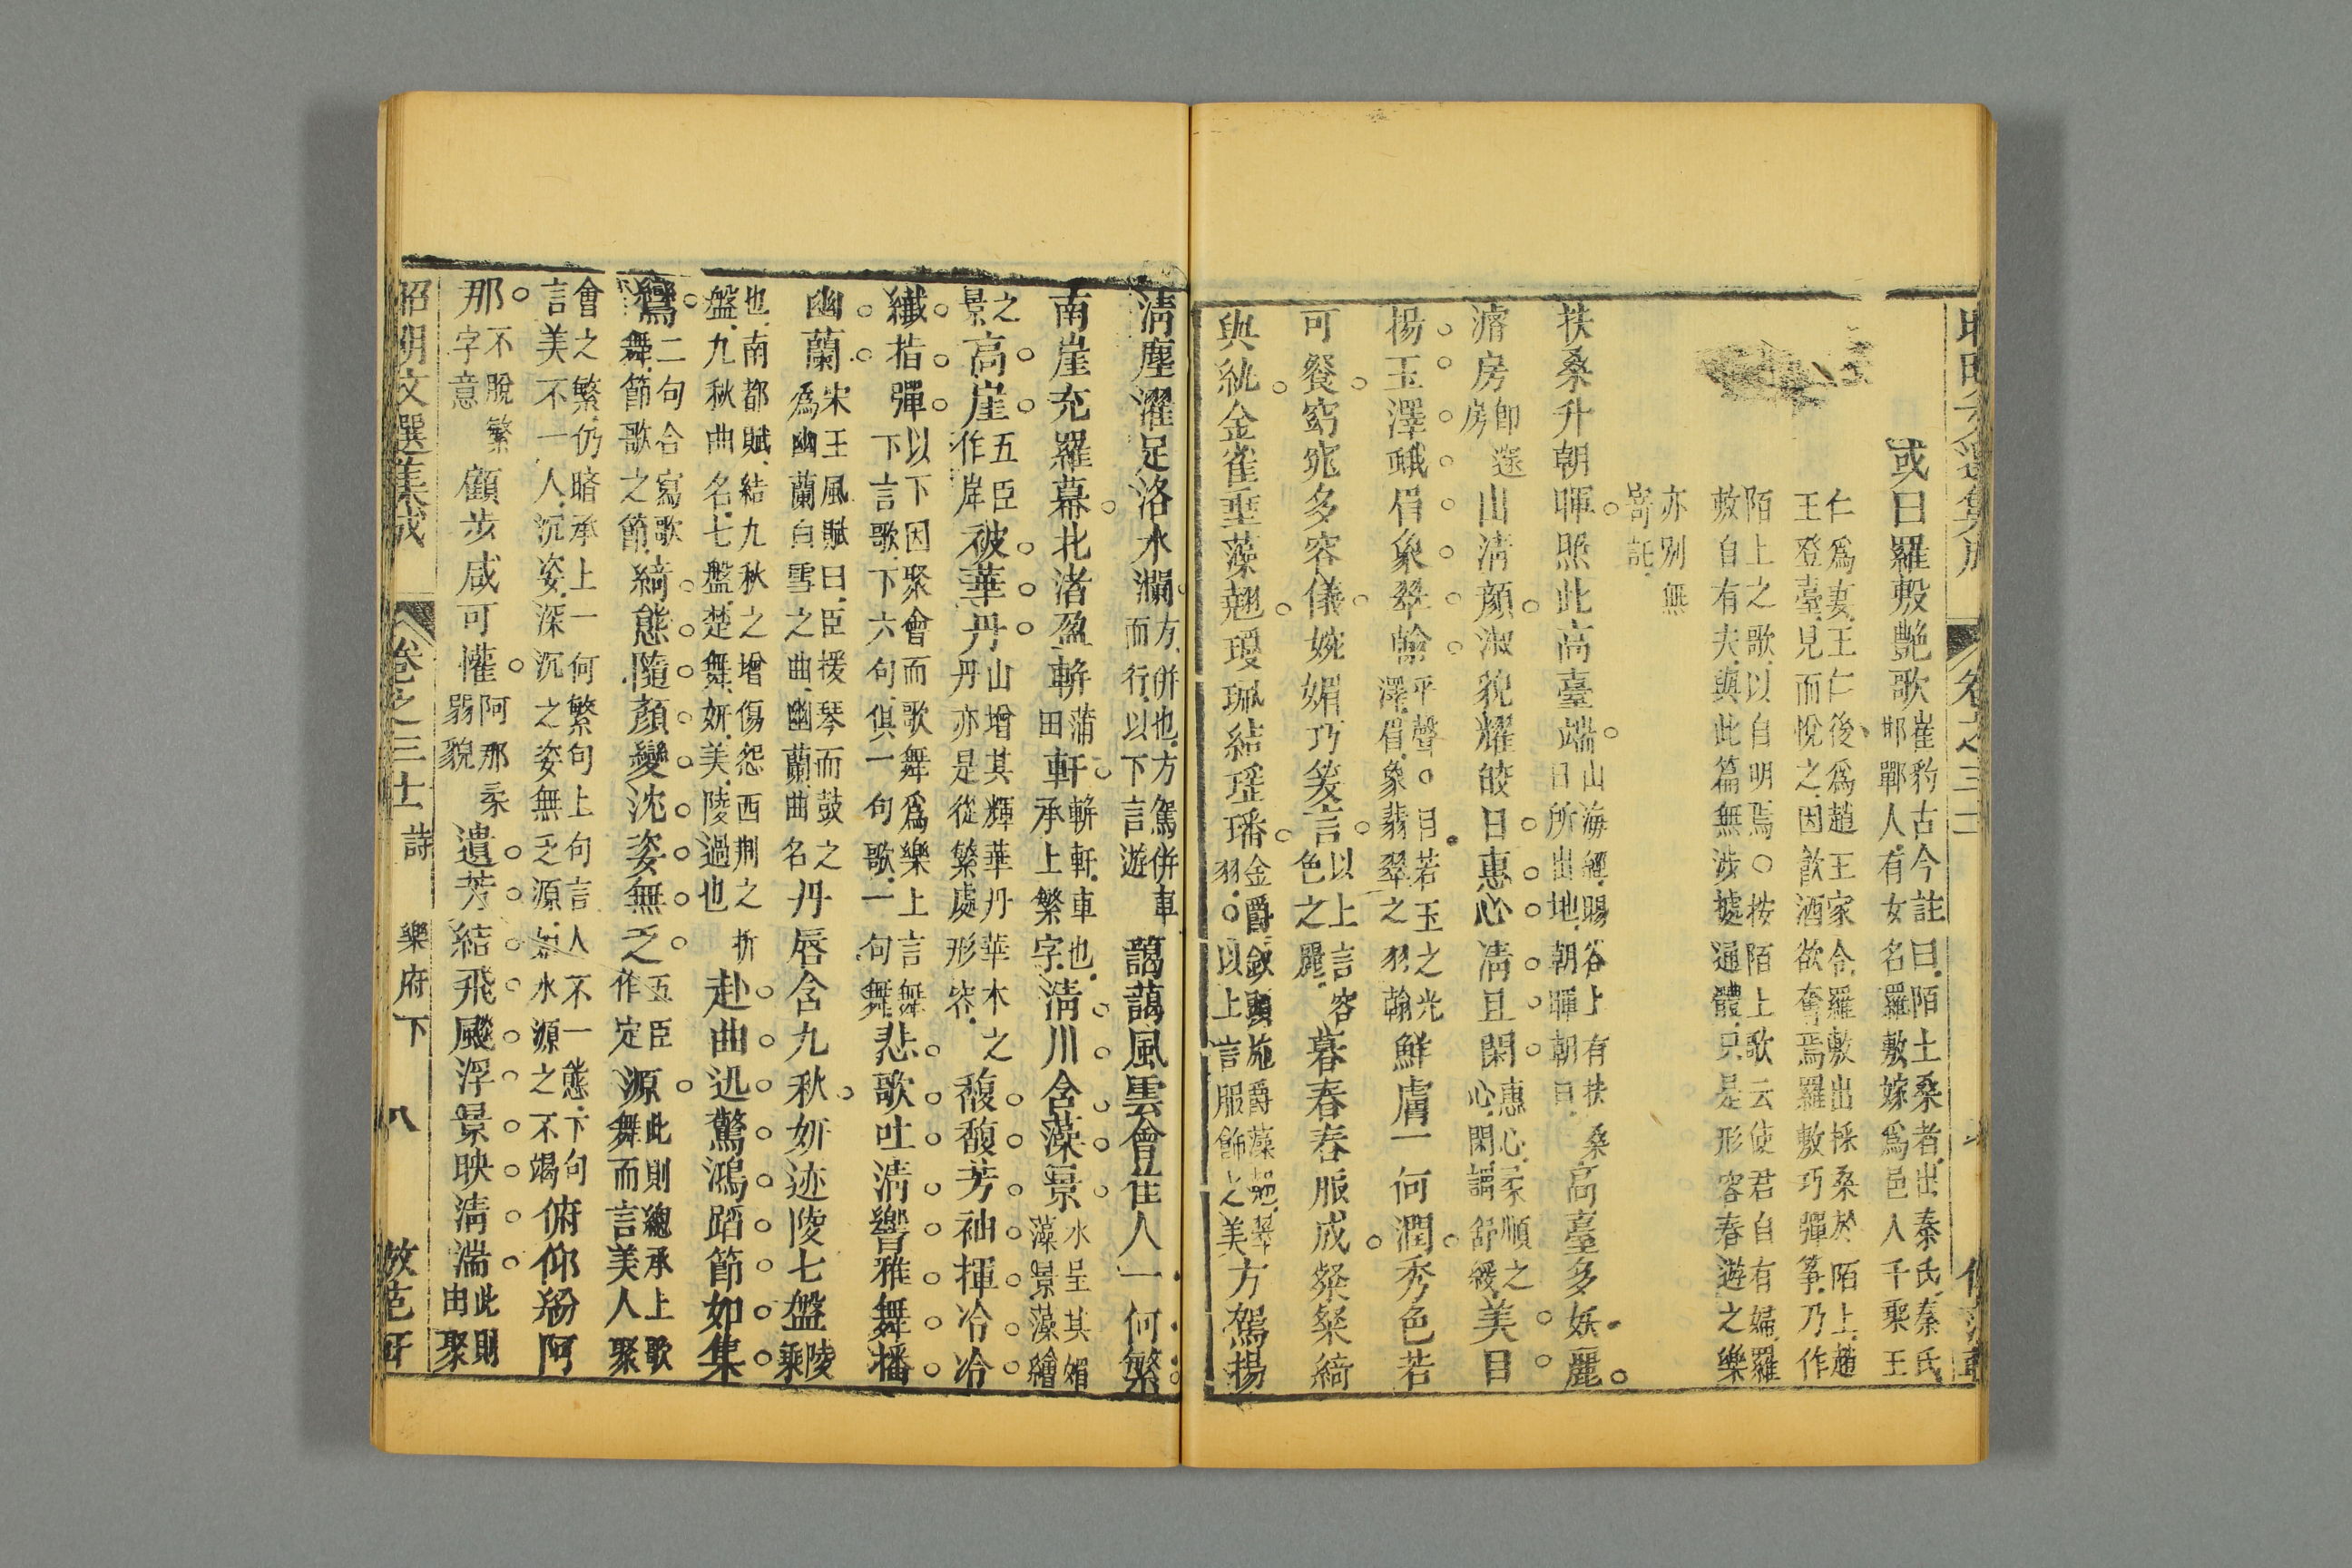 或曰羅敷艷歌崔豹古今註曰陌上桑者出秦氏秦氏邯鄲人有女名羅敷嫁爲邑人千乘王
仁爲妻王仁後爲趙王家令羅敷出採桑於陌上趙王登臺見而悅之因飲酒欲奪焉羅敷巧彈箏乃作
陌上之歌以自明焉○按陌上歌云使君自有婦羅敷自有夫與此篇無涉據通體只是形容春遊之樂
亦別無寄託
扶桑升朝暉照此高臺端山海經暘谷上有扶桑日所出地朝暉朝日高臺多妖麗
濬房卽邃房出淸顏淑貌耀皎日惠心淸且閑惠心柔順之心閑謂舒緩美目
揚玉澤蛾眉象翠翰平聲○目若玉之光澤眉象翡翠之羽翰鮮膚一何潤秀色若
可餐窈窕多容儀婉媚巧笑言以上言容色之麗暮春春服成粲粲綺
與紈金雀垂藻翹瓊珮結瑤璠金爵釵頭施爵藻翹翠羽○以上言服飾之美方駕揚
淸塵濯足洛水瀾方併也方駕併車而行以下言遊藹藹風雲會佳人一何繁
南崖充羅幕北渚盈軿蒲田軒軿軒車也承上繁字淸川含藻景水呈其媚藻景藻繪
之景高崖五臣作岸被華丹山增其輝華丹華木之丹亦是從繁處形容馥馥芳袖揮冷冷
纖指彈以下因聚會而歌舞爲樂上言舞下言歌下六句俱一句歌一句舞悲歌吐淸響雅舞播
幽蘭宋王風賦曰臣援琴而鼓之爲幽蘭白雪之曲幽蘭曲名丹唇含九秋妍迹陵七盤陵乘
也南都賦結九秋之增傷怨西荆之折盤九秋曲名七盤楚舞妍美陵過也赴曲迅驚鴻蹈節如集
鸞二句合寫歌舞節歌之節綺態隨顏變沈姿無乏五臣作定源此則總承上歌舞而言美人聚
會之繁仍暗承上一何繁句上句言人不一態下句言美不一人沉姿深沉之姿無乏源如水源之不竭俯仰紛阿
那不脫繁字意顧步咸可懽阿那柔弱貌遺芳結飛飇浮景映淸湍此則由聚
昭明文選集成 卷之三十 詩 樂府下 八